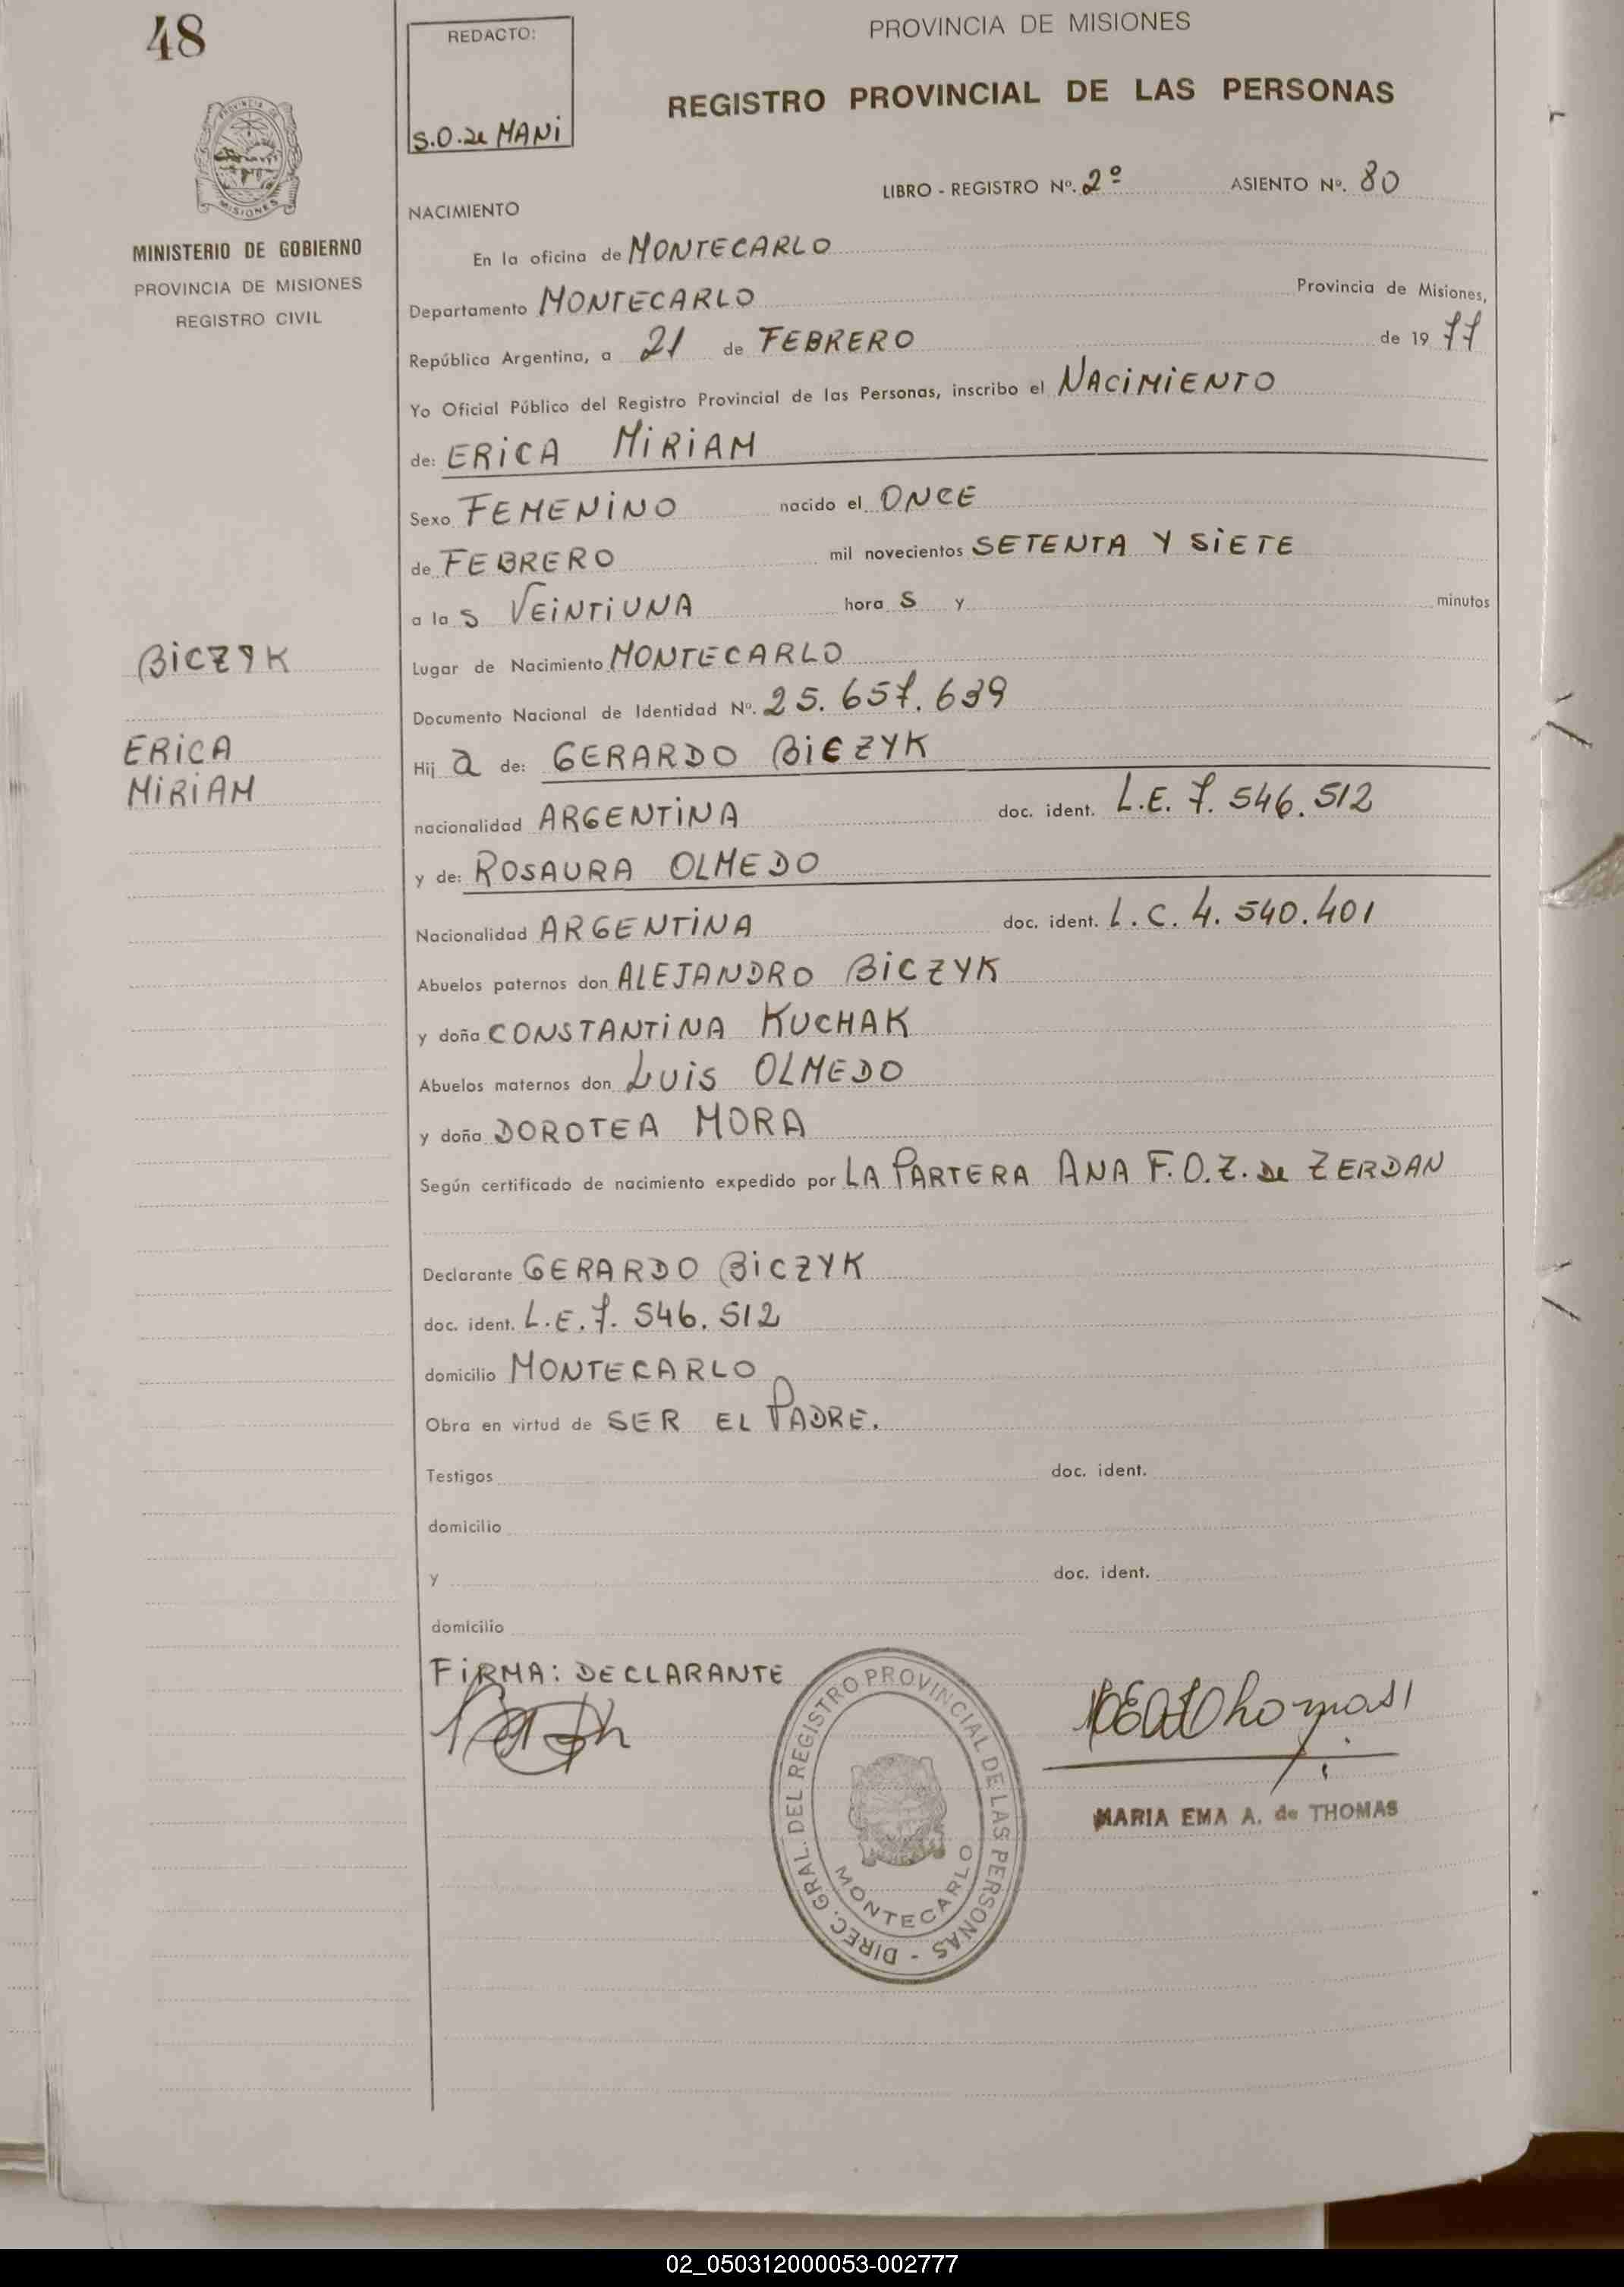 48
REDACTO:
S.O. de MANI
PROVINCIA DE MISIONES
REGISTRO PROVINCIAL DE LAS PERSONAS
LIBRO - REGISTRO Nº. 2º ASIENTO Nº. 80
PROVINCIA DE MISIONES
MINISTERIO DE GOBIERNO
PROVINCIA DE MISIONES
REGISTRO CIVIL
NACIMIENTO
En la oficina de MONTECARLO
Departamento MONTECARLO Provincia de Misiones,
República Argentina, a 21 de FEBRERO de 19 77
Yo Oficial Público del Registro Provincial de las Personas, inscribo el NACIMIENTO
de: ERICA MIRIAM
Sexo FEMENINO nacido el ONCE
de FEBRERO mil novecientos SETENTA Y SIETE
a la S VEINTIUNA hora S y minutos
BICZYK
Lugar de Nacimiento MONTECARLO
Documento Nacional de Identidad Nº. 25.657.639
ERICA
MIRIAM
Hij a de: GERARDO BICZYK
nacionalidad ARGENTINA doc. ident. L.E. 7.546.512
y de: ROSAURA OLMEDO
Nacionalidad ARGENTINA doc. ident. L.C. 4.540.401
Abuelos paternos don ALEJANDRO BICZYK
y doña CONSTANTINA KUCHAK
Abuelos maternos don LUIS OLMEDO
y doña DOROTEA MORA
Según certificado de nacimiento expedido por LA PARTERA ANA F.O.Z. de ZERDAN
Declarante GERARDO BICZYK
doc. ident. L.E. 7.546.512
domicilio MONTECARLO
Obra en virtud de SER EL PADRE.
Testigos doc. ident.
domicilio
y doc. ident.
domicilio
FIRMA: DECLARANTE
DIREC. GRAL. DEL REGISTRO PROVINCIAL DE LAS PERSONAS -
MONTECARLO
MARIA EMA A. de THOMAS
02_050312000053-002777